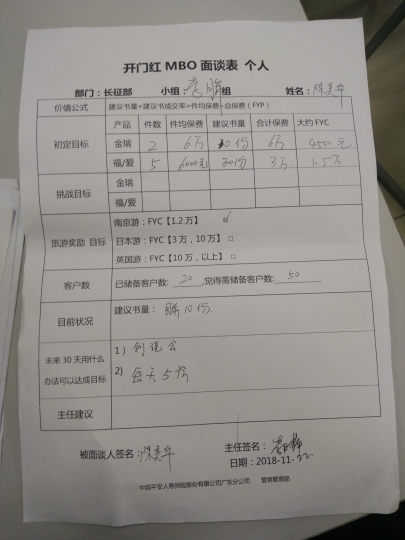 开门红 MBO 面谈表 个人
部门：长征部 小组： 组 姓名：陈美华
价值公式 建议书量×建议书成交率×件均保费=总保费（FYP）
产品 件数 件均保费 建议书量 合计保费 大约 FYC
初定目标 金瑞 2 6万 10份 6万 4500元
福/爱 5 6000元 20份 3万 1.5万
挑战目标 金瑞
福/爱
南京游：FYC【1.2 万】 ☑
旅游奖励 目标 日本游：FYC【3 万，10 万】□
英国游：FYC【10 万，以上】□
客户数 已储备客户数： 20 ,觉得需储备客户数： 50
目前状况 建议书量： 10份
未来 30 天用什么 1） 创说会
办法可以达成目标 2) 每天5访
主任建议
被面谈人签名：陈美华 主任签名：
日期：2018-11-22
中国平安人寿保险股份有限公司广东分公司 营销管理部